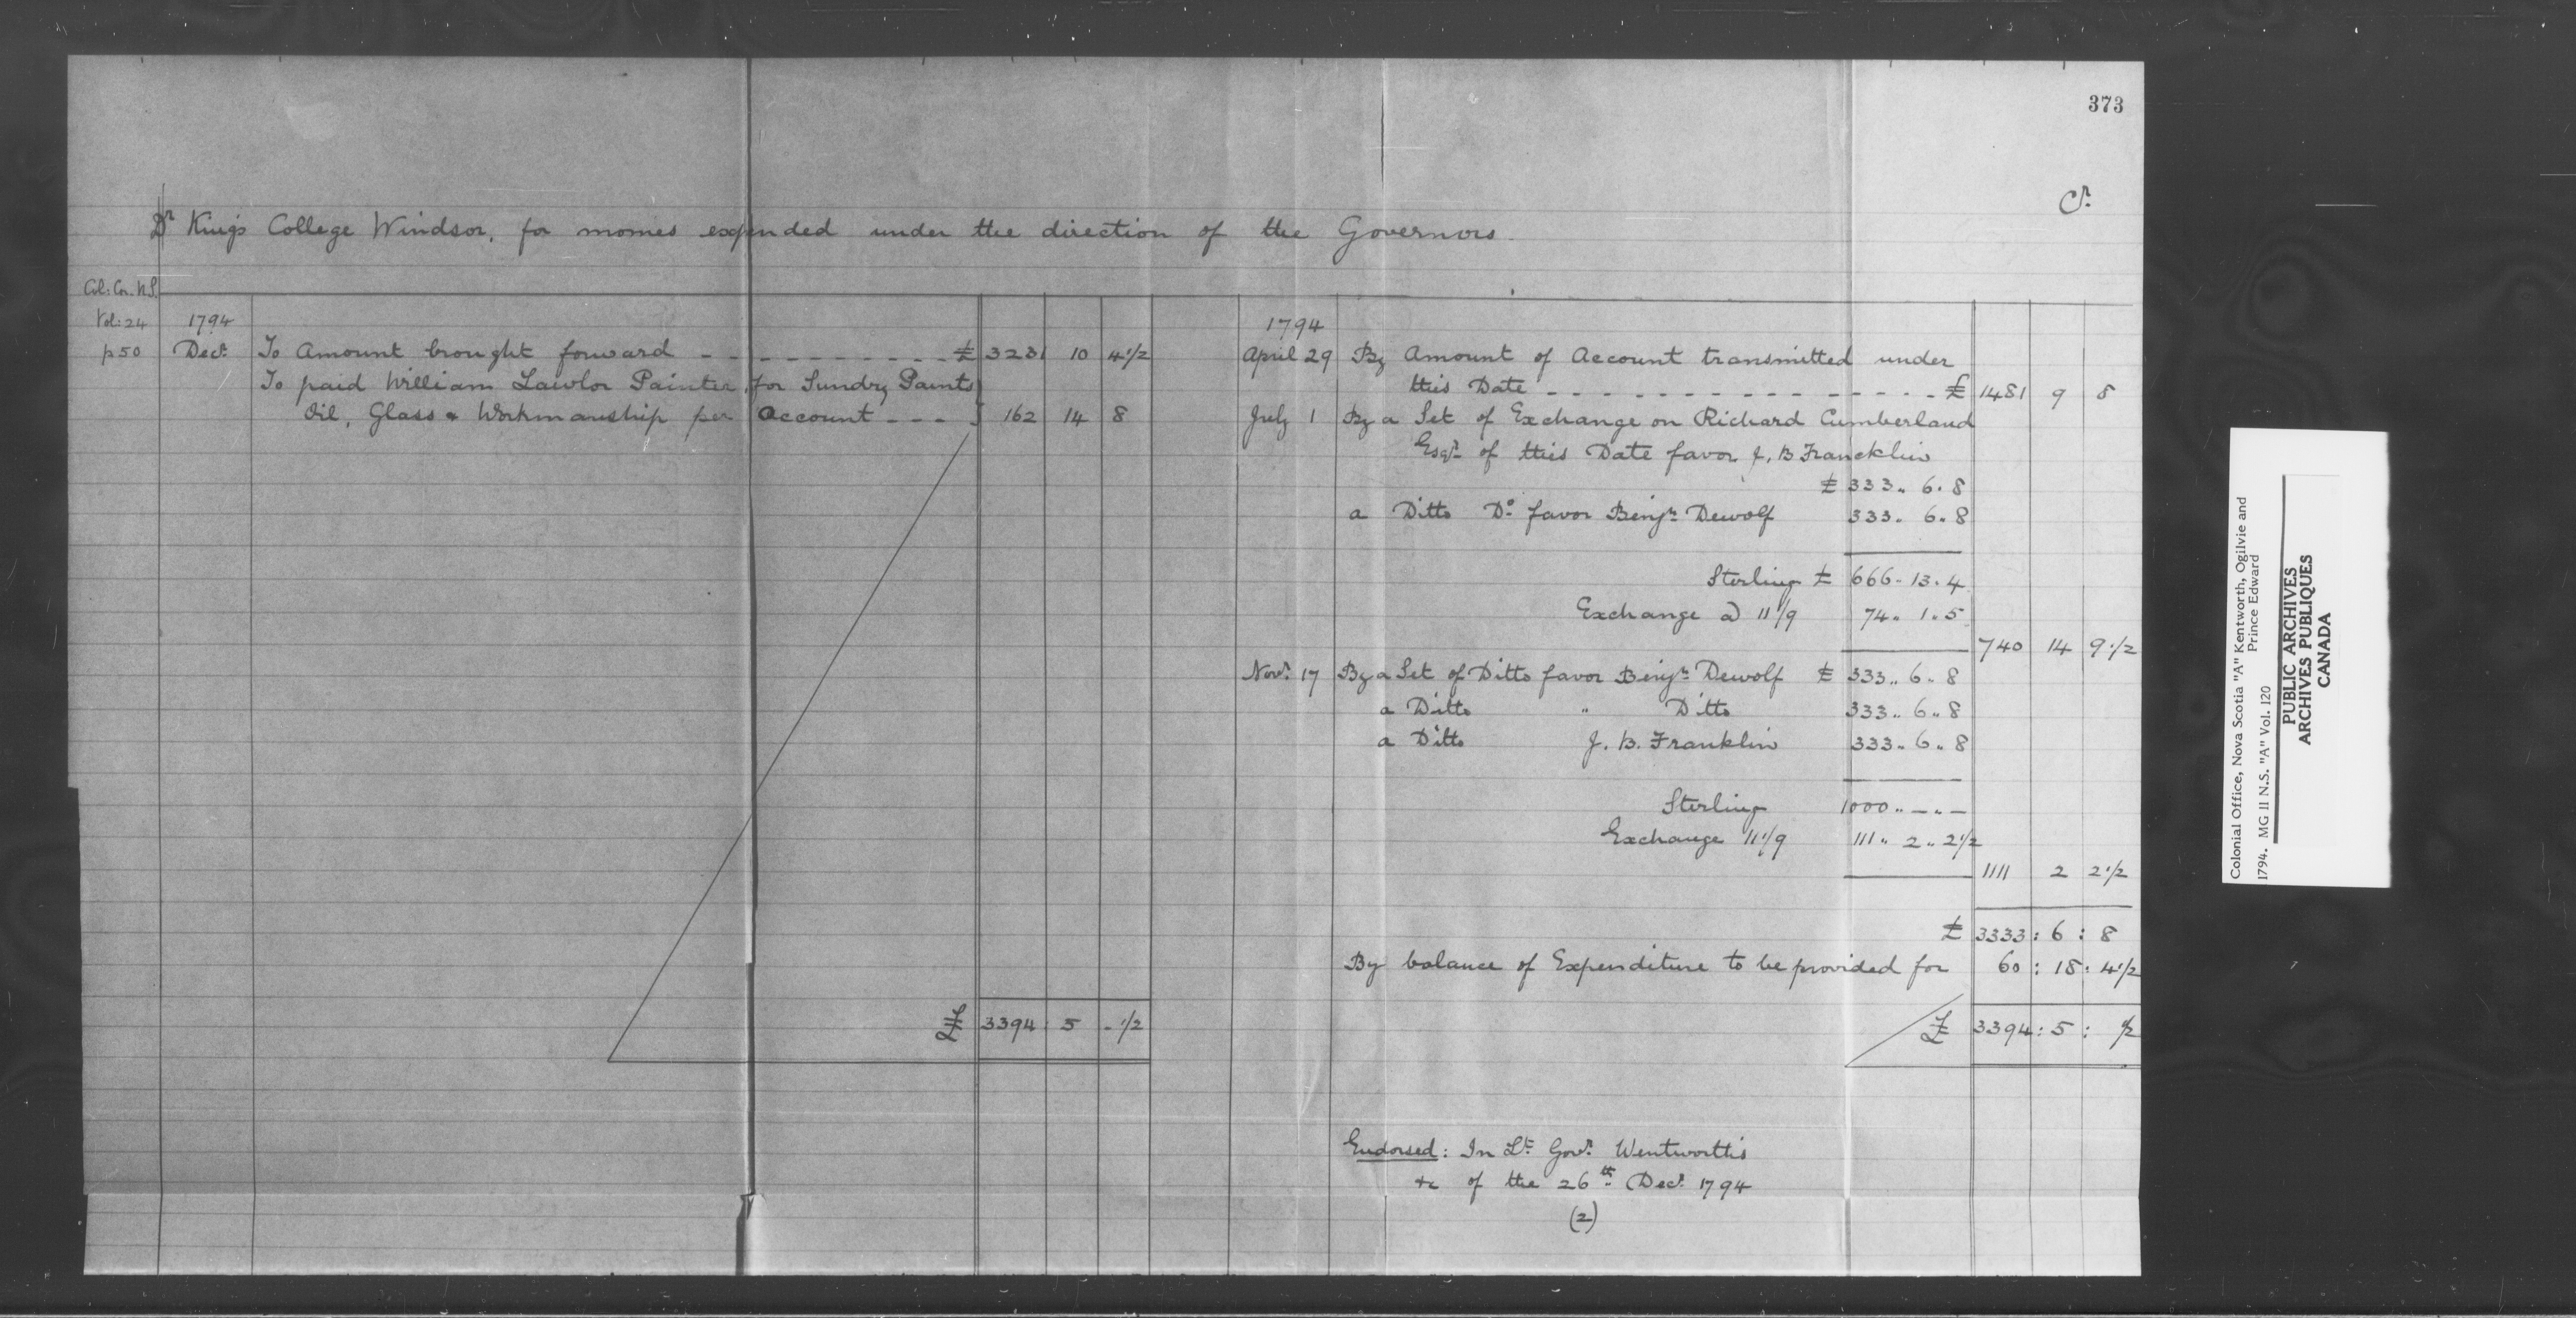 373
Cr.
Dr Kings College Windsor, for monies expended under the direction of the Governors.
Col: Cor. N.S.
Vol: 24
p 50
1794
Decr. To Amount brought forward - - - - - - - - - £ 3231 10 4 1/2
To paid William Lawlor Painter for Sundry Paints
Oil, Glass & Workmanship per Account - - - 162 14 8
£ 3394 5 - 1/2
1794
April 29 By Amount of Account transmitted under
this Date - - - - - - - - - - - - - - £ 1481 9 8
July 1 By a Set of Exchange on Richard Cumberland
Esqr. of this Date favor J. B Francklin
£ 333.. 6. 8
a Ditto Do. favor Benjn. Dewolf 333.. 6.. 8
Sterling £ 666 - 13 . 4
Exchange @ 11 1/9 74.. 1.. 5
740 14 9 1/2
Novr. 17 By a Set of Ditto favor Benjn. Dewolf £ 333.. 6.. 8
a Ditto " Ditto 333.. 6.. 8
a Ditto J. B. Franklin 333.. 6.. 8
Sterling 1000.. - .. -
Exchange 11 1/9 111.. 2.. 2 1/2
1111 2 2 1/2
£ 3333 : 6 : 8
By balance of Expenditure to be provided for 60 : 18 : 4 1/2
£ 3394 : 5 : 1/2
Endorsed: In Lt. Govr. Wentworth's
&c of the 26th. Decr. 1794
(2)
Colonial Office, Nova Scotia "A" Kentworth, Ogilvie and
Prince Edward
1794. MG 11 N.S. "A" Vol. 120
PUBLIC ARCHIVES
ARCHIVES PUBLIQUES
CANADA